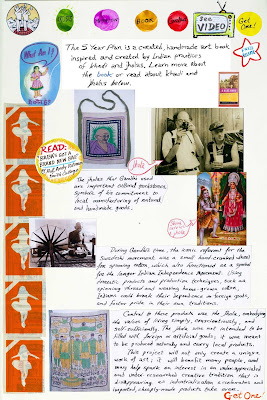 BOOK
SEE
VIDEO
Get
One!
What Am I?
The 5 Year Plan is a created, handmade art book
inspired and created by Indian practices
of khadi and jholas. Learn more about
the book or read about khadi and
jholas below.
READ:
BRAND NEW BAG"
The jholas that Gandhi used
are important cultural protrusions,
Symbols of his commitment to
local manufacturing of natural
and handmade goods.
During Gandhi's time, the iconic referent for the
Swadeshi movement was a small hand-cranked wheel
for spinning cotton, which also functioned as a symbol
for the larger Indian Independence movement. Using
domestic products and production techniques, such as
spinning thread and weaving home-grown cotton,
Indians could break their dependence on foreign goods,
and foster pride in their own traditions.
Central to these products was the jhola, embodying
the values of living simply, conscientiously, and
self-sufficiently. The jhola was not intended to be
filled with foreign or artificial goods; it was meant
to be produced naturally and carry local products.
This project will not only create a unique
work of art, it will benefit many people, and
may help spark an interest in an under-appreciated
and under researched creative tradition that is
disappearing as industrialization accelerates and
imported, cheaply-made products take over.
Get One!